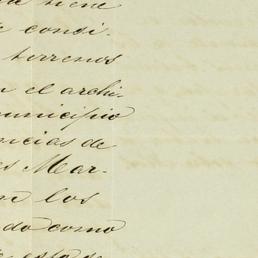 tiene
condi-
terrenos
n el archi-
municipio
ncias de
es Mar-
n los
do como